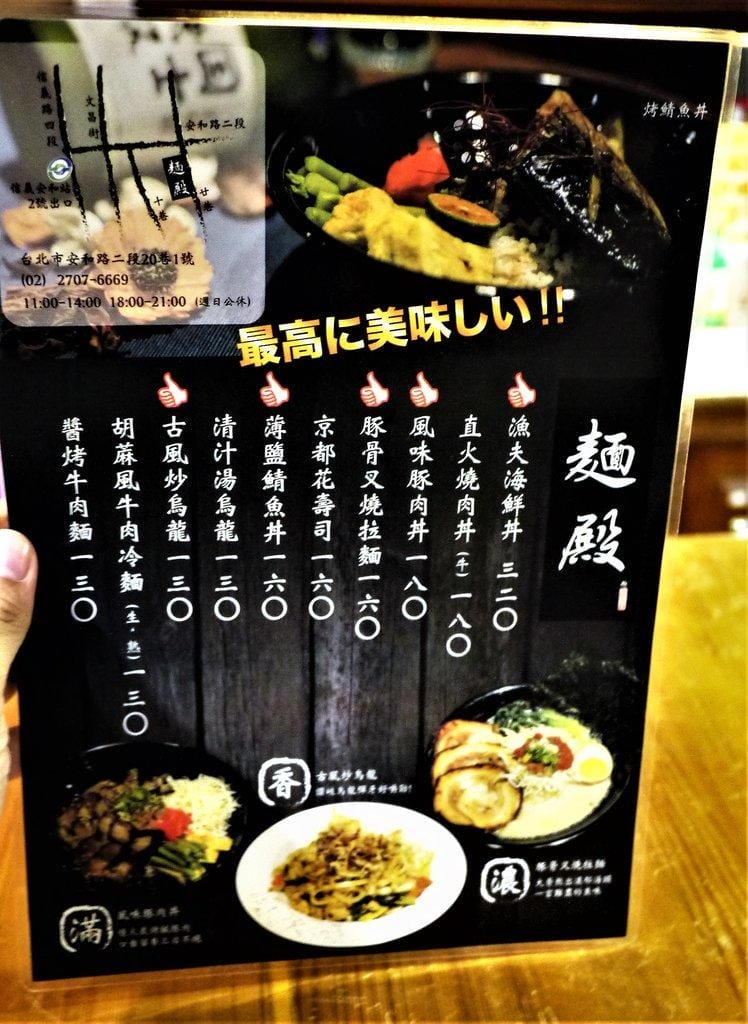 信義路四段
文昌街
安和路二段
麵殿
信義安和站
2號出口
十巷
廿巷
台北市安和路二段20巷1號
(02) 2707-6669
11:00-14:00 18:00-21:00 (週日公休)
烤鯖魚丼
最高に美味しい!!
麵殿
漁夫海鮮丼 三二〇
直火燒肉丼(牛)一八〇
風味豚肉丼 一八〇
豚骨叉燒拉麵 一六〇
京都花壽司 一六〇
薄鹽鯖魚丼 一六〇
清汁湯烏龍 一三〇
古風炒烏龍 一三〇
胡蔴風牛肉冷麵(生・熟)一三〇
醬烤牛肉麵 一三〇
香
古風炒烏龍
讚岐烏龍彈牙好嚼勁!
濃
豚骨叉燒拉麵
大骨熬出濃郁湯頭
一言難盡的美味
滿
風味豚肉丼